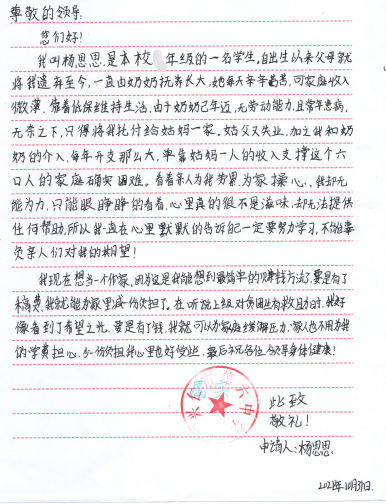 尊敬的领导:
您们好!
我叫杨思思,是本校 年级的一名学生,自出生以来父母就
将我遗弃至今,一直由奶奶抚养长大,她每天辛辛苦苦,可家庭收入
微薄,靠着低保维持生活,由于奶奶已年迈,无劳动能力,且常年患病,
无奈之下,只得将我托付给姑妈一家。姑父又失业,加之我和奶
奶的介入,每年开支那么大,单靠姑妈一人的收入支撑这个六
口人的家庭确实困难。看着亲人为我劳累为家操心,我却无
能为力,只能眼睁睁的看着,心里真的很不是滋味,却无法提供
任何帮助,所以我一直在心里默默的告诉自己一定要努力学习,不能辜
负亲人们对我的期望!
我现在想当一个作家,因为这是我能想到最简单的赚钱方法了,要是有了
稿费,我就能为家里减负担了。在听说上级对贫困生有救助时,我好
像看到了希望之光,要是有了钱,我就可以为家庭缓解压力,家人也不用为我
的学费担心,少一份负担我心里也好受些,最后祝各位领导身体健康!
此致
敬礼!
申请人:杨思思
2021年10月31日.
六中